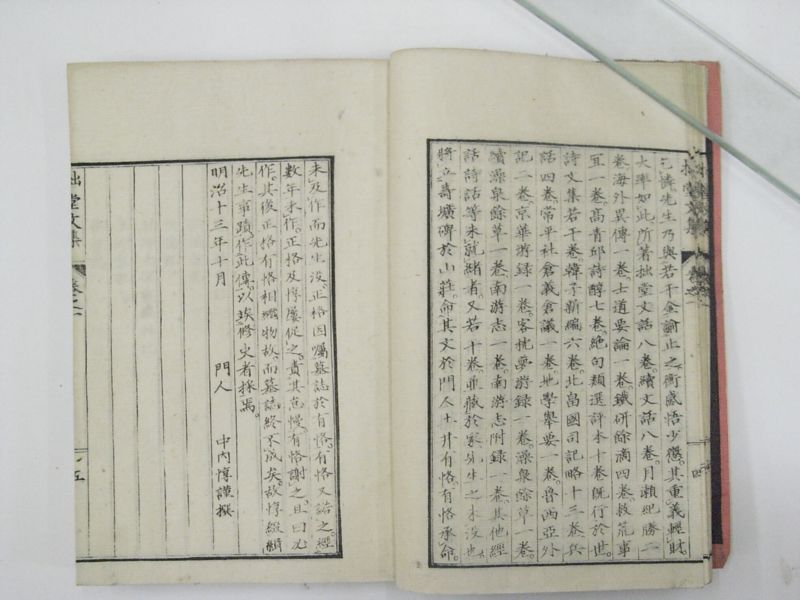 乞憐先生乃與若干金諭止之衡感悟少懲其重義輕財
大率如此所著拙堂文話八卷續文話八卷月瀨紀勝二
卷海外異傳一卷士道要論一卷鐵研餘滴四卷救荒事
宜一卷高青邱詩醇七卷絕句類選評本十卷既行於世
詩文集若干卷韓子新編六卷北畠國司記略十三卷兵
話四卷常平社倉義倉議一卷地學舉要一卷魯西亞外
記二卷京華游錄一卷客枕夢游錄一卷澡泉餘草一卷
續澡泉餘草一卷南游志一卷南游志附錄一卷其他經
話詩話等未就緒者又若干卷並藏於家先生之未沒也
將立壽壙碑於山莊命其文於門人土井有恪有恪承命
未及作而先生沒正格因囑墓誌於有恪有恪又諾之經
數年未作正格及惇屢促之責其怠慢有恪謝之且曰必
作其後正格有恪相繼物故而墓誌終不成矣故惇綴緝
先生事蹟作此傳以俟修史者採焉
明治十三年十月 門人 中內惇謹撰
拙堂文集 卷之一 五